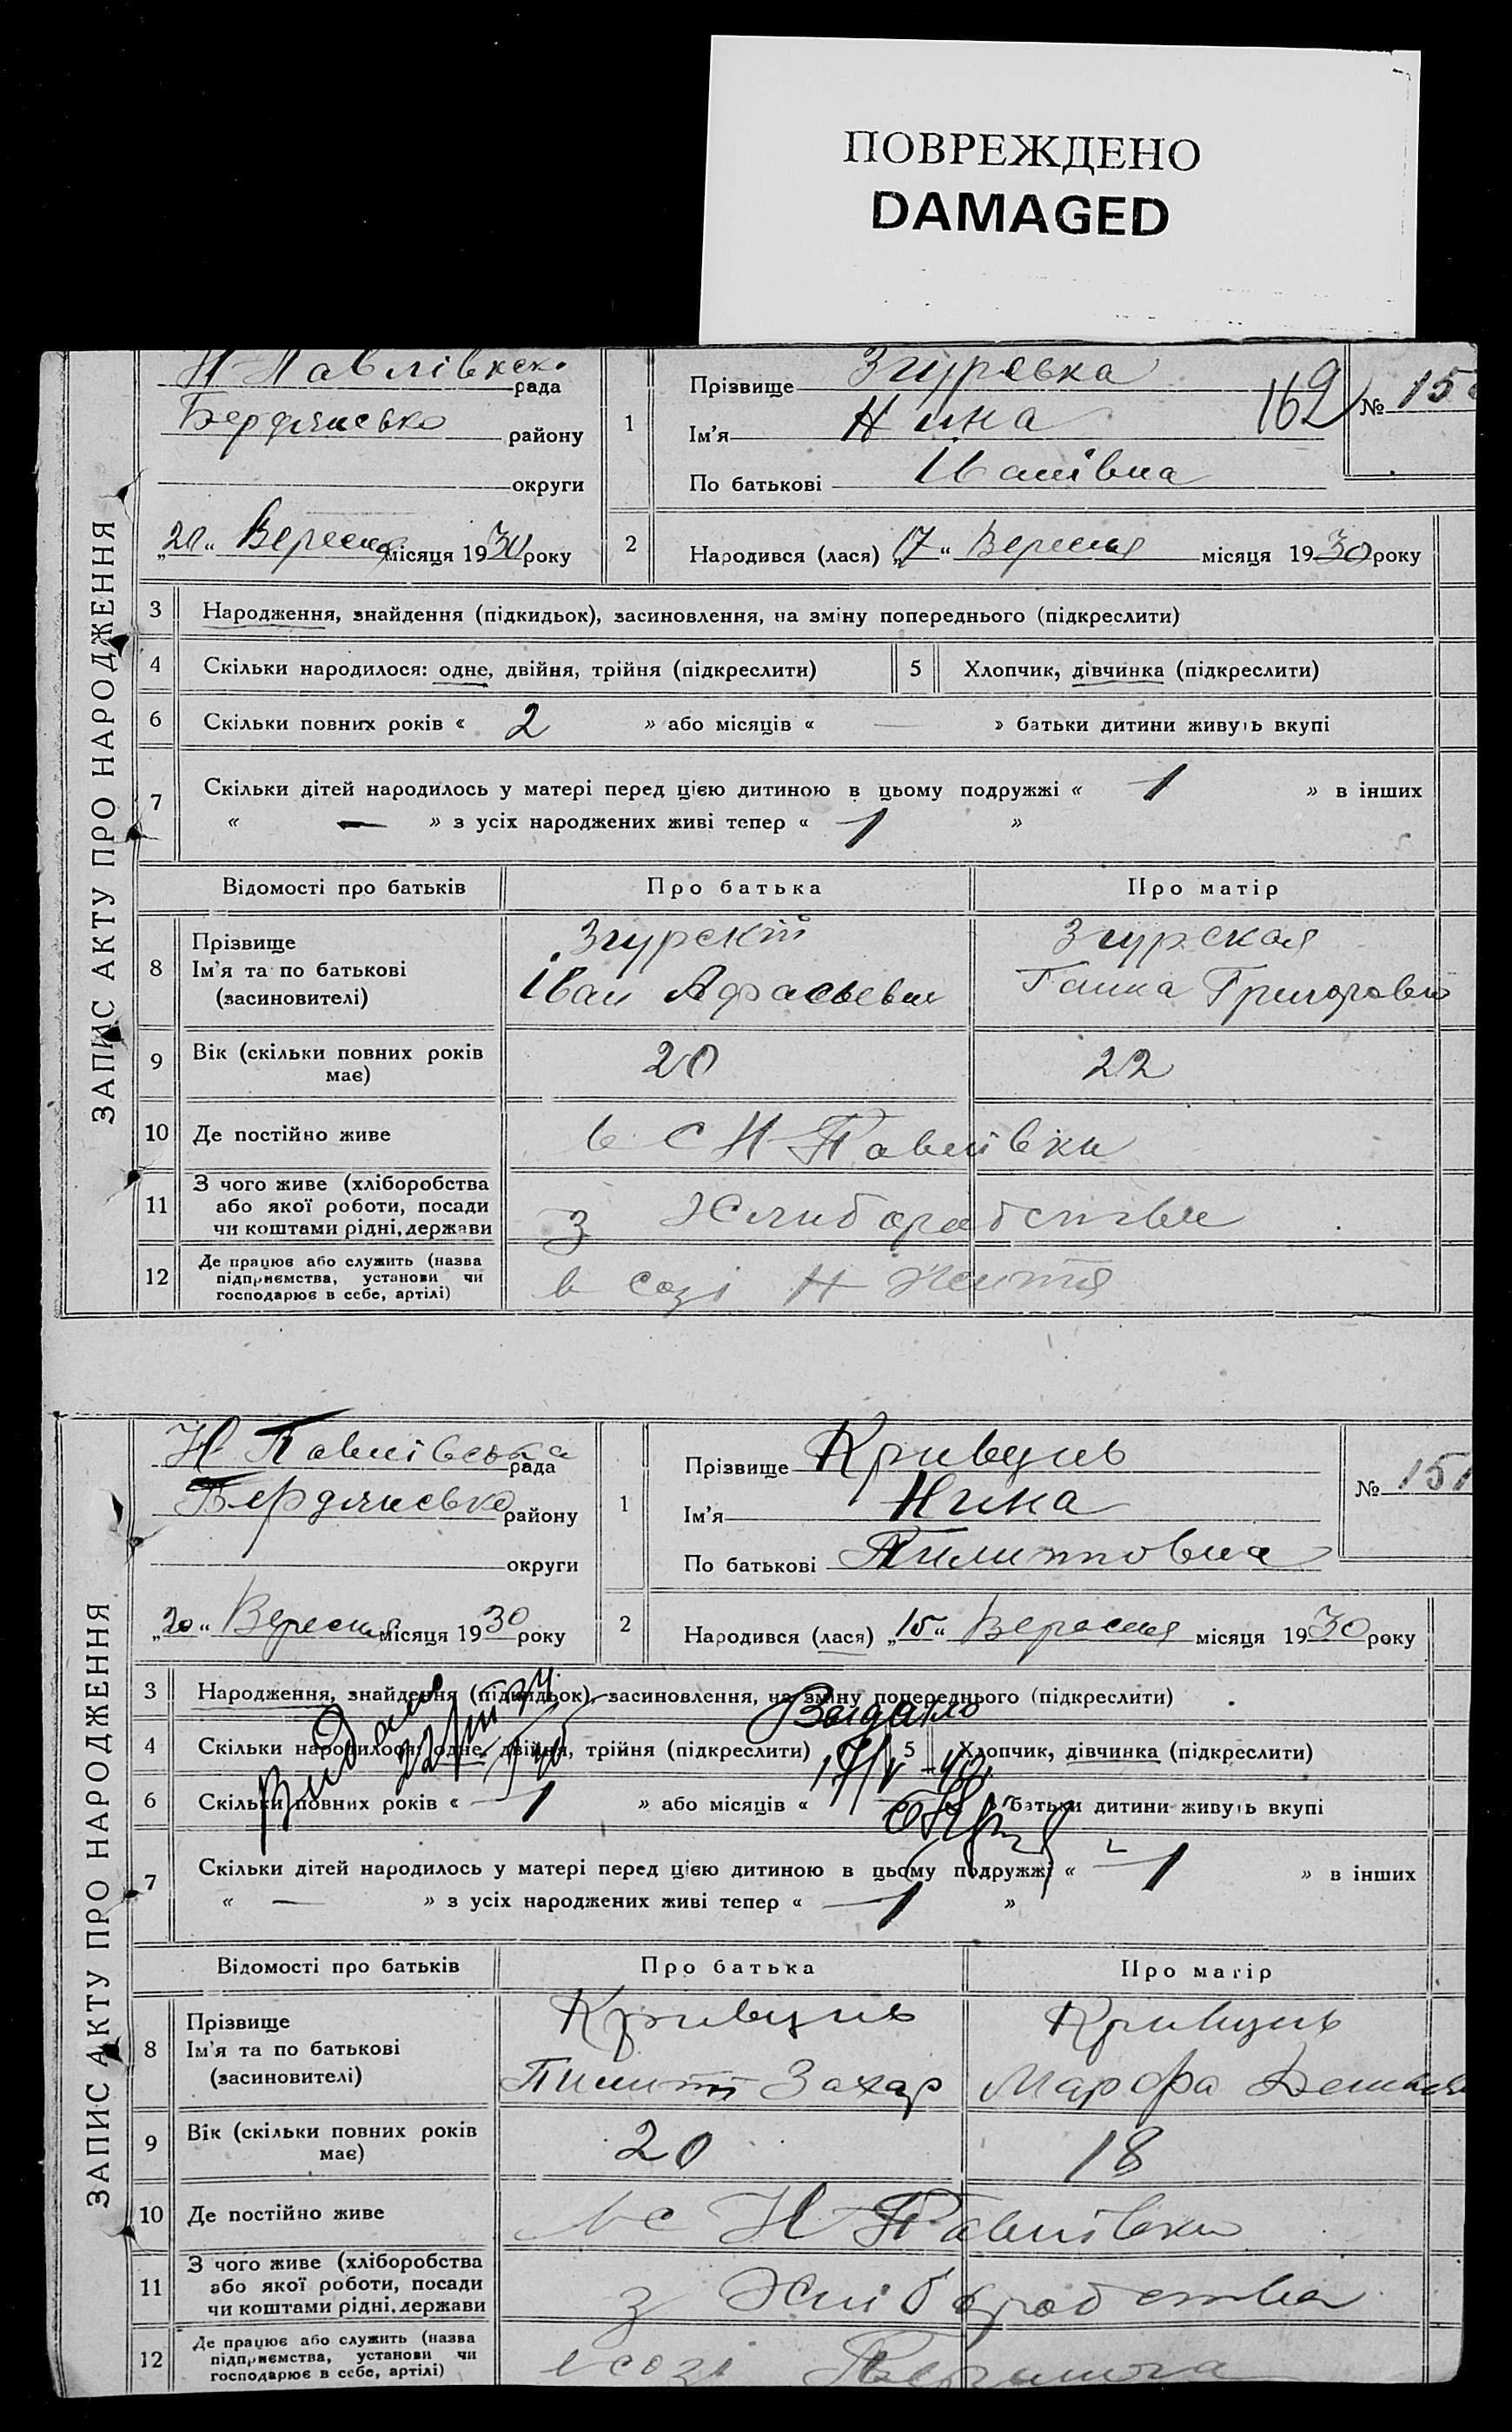 ПОВРЕЖДЕНО
DAMAGED
ЗАПИС АКТУ ПРО НАРОДЖЕННЯ
Н Павлівкск. рада
Бердянсько району
округи
„20“ Вересня місяця 1930 року
1
Прізвище Згуревка
Ім'я Нина
По батькові Іванівна
162
№ 15
2
Народився (лася) „17“ Вересня місяця 1930 року
3 Народження, знайдення (підкидьок), засиновлення, на зміну попереднього (підкреслити)
4 Скільки народилося: одне, двійня, трійня (підкреслити) 5 Хлопчик, дівчинка (підкреслити)
6 Скільки повних років « 2 » або місяців « — » батьки дитини живуть вкупі
7 Скільки дітей народилось у матері перед цією дитиною в цьому подружжі « 1 » в інших
« — » з усіх народжених живі тепер « 1 »
Відомості про батьків Про батька Про матір
8 Прізвище Згурскій Згурская
Ім'я та по батькові Іван Афасьевич Ганна Григоровно
(засиновителі)
9 Вік (скільки повних років має) 20 22
10 Де постійно живе в с Н Павлівки
11 З чого живе (хліборобства
або якої роботи, посади
чи коштами рідні, держави
з Хлиборобства
12 Де працює або служить (назва
підприємства, установи чи
господарює в себе, артілі)
в созі Н Життя
ЗАПИС АКТУ ПРО НАРОДЖЕННЯ
Н Павлівська рада
Бердянсько району
округи
„20“ Вересня місяця 1930 року
1
Прізвище Кривцунь
Ім'я Нина
По батькові Пилиповна
№ 151
2
Народився (лася) „15“ Вересня місяця 1930 року
3 Народження, знайдення (підкидьок), засиновлення, на зміну попереднього (підкреслити)
Выдано
4 Скільки народилося: одне, двійня, трійня (підкреслити) 5 Хлопчик, дівчинка (підкреслити)
6 Скільки повних років « 1 » або місяців « » батьки дитини живуть вкупі
7 Скільки дітей народилось у матері перед цією дитиною в цьому подружжі « 1 » в інших
« — » з усіх народжених живі тепер « 1 »
Відомості про батьків Про батька Про матір
8 Прізвище Кривцунь Кривцунь
Ім'я та по батькові Пилип Захар Марфа
(засиновителі)
9 Вік (скільки повних років має) 20 18
10 Де постійно живе в с Н Павлівки
11 З чого живе (хліборобства
або якої роботи, посади
чи коштами рідні, держави
з Хліборобства
12 Де працює або служить (назва
підприємства, установи чи
господарює в себе, артілі)
в созі